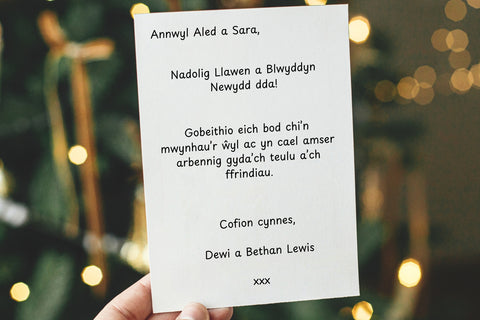 Annwyl Aled a Sara,
Nadolig Llawen a Blwyddyn
Newydd dda!
Gobeithio eich bod chi'n
mwynhau'r ŵyl ac yn cael amser
arbennig gyda'ch teulu a'ch
ffrindiau.
Cofion cynnes,
Dewi a Bethan Lewis
xxx